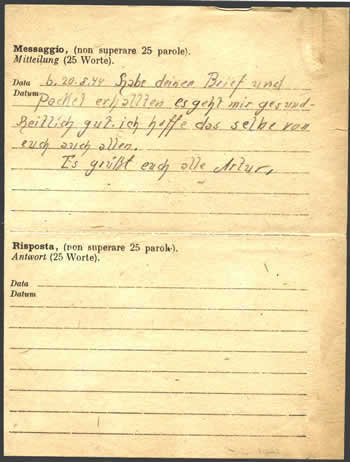 Messaggio, (non superare 25 parole).
Mitteilung (25 Worte).
Data b. 20.8.44 Habe deinen Brief und
Datum Packet erhallten es geht mir gesund-
heitlich gut. ich hoffe das selbe von
euch auch allen.
Es grüßt euch alle Artur,
Risposta, (non superare 25 parole).
Antwort (25 Worte).
Data
Datum